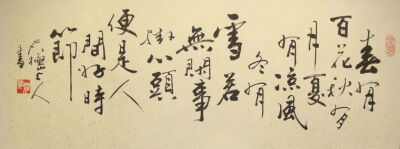 春有
百花秋有
月夏
有凉風
冬有
雪若
無閑事
掛心頭
便是人
間好時
節